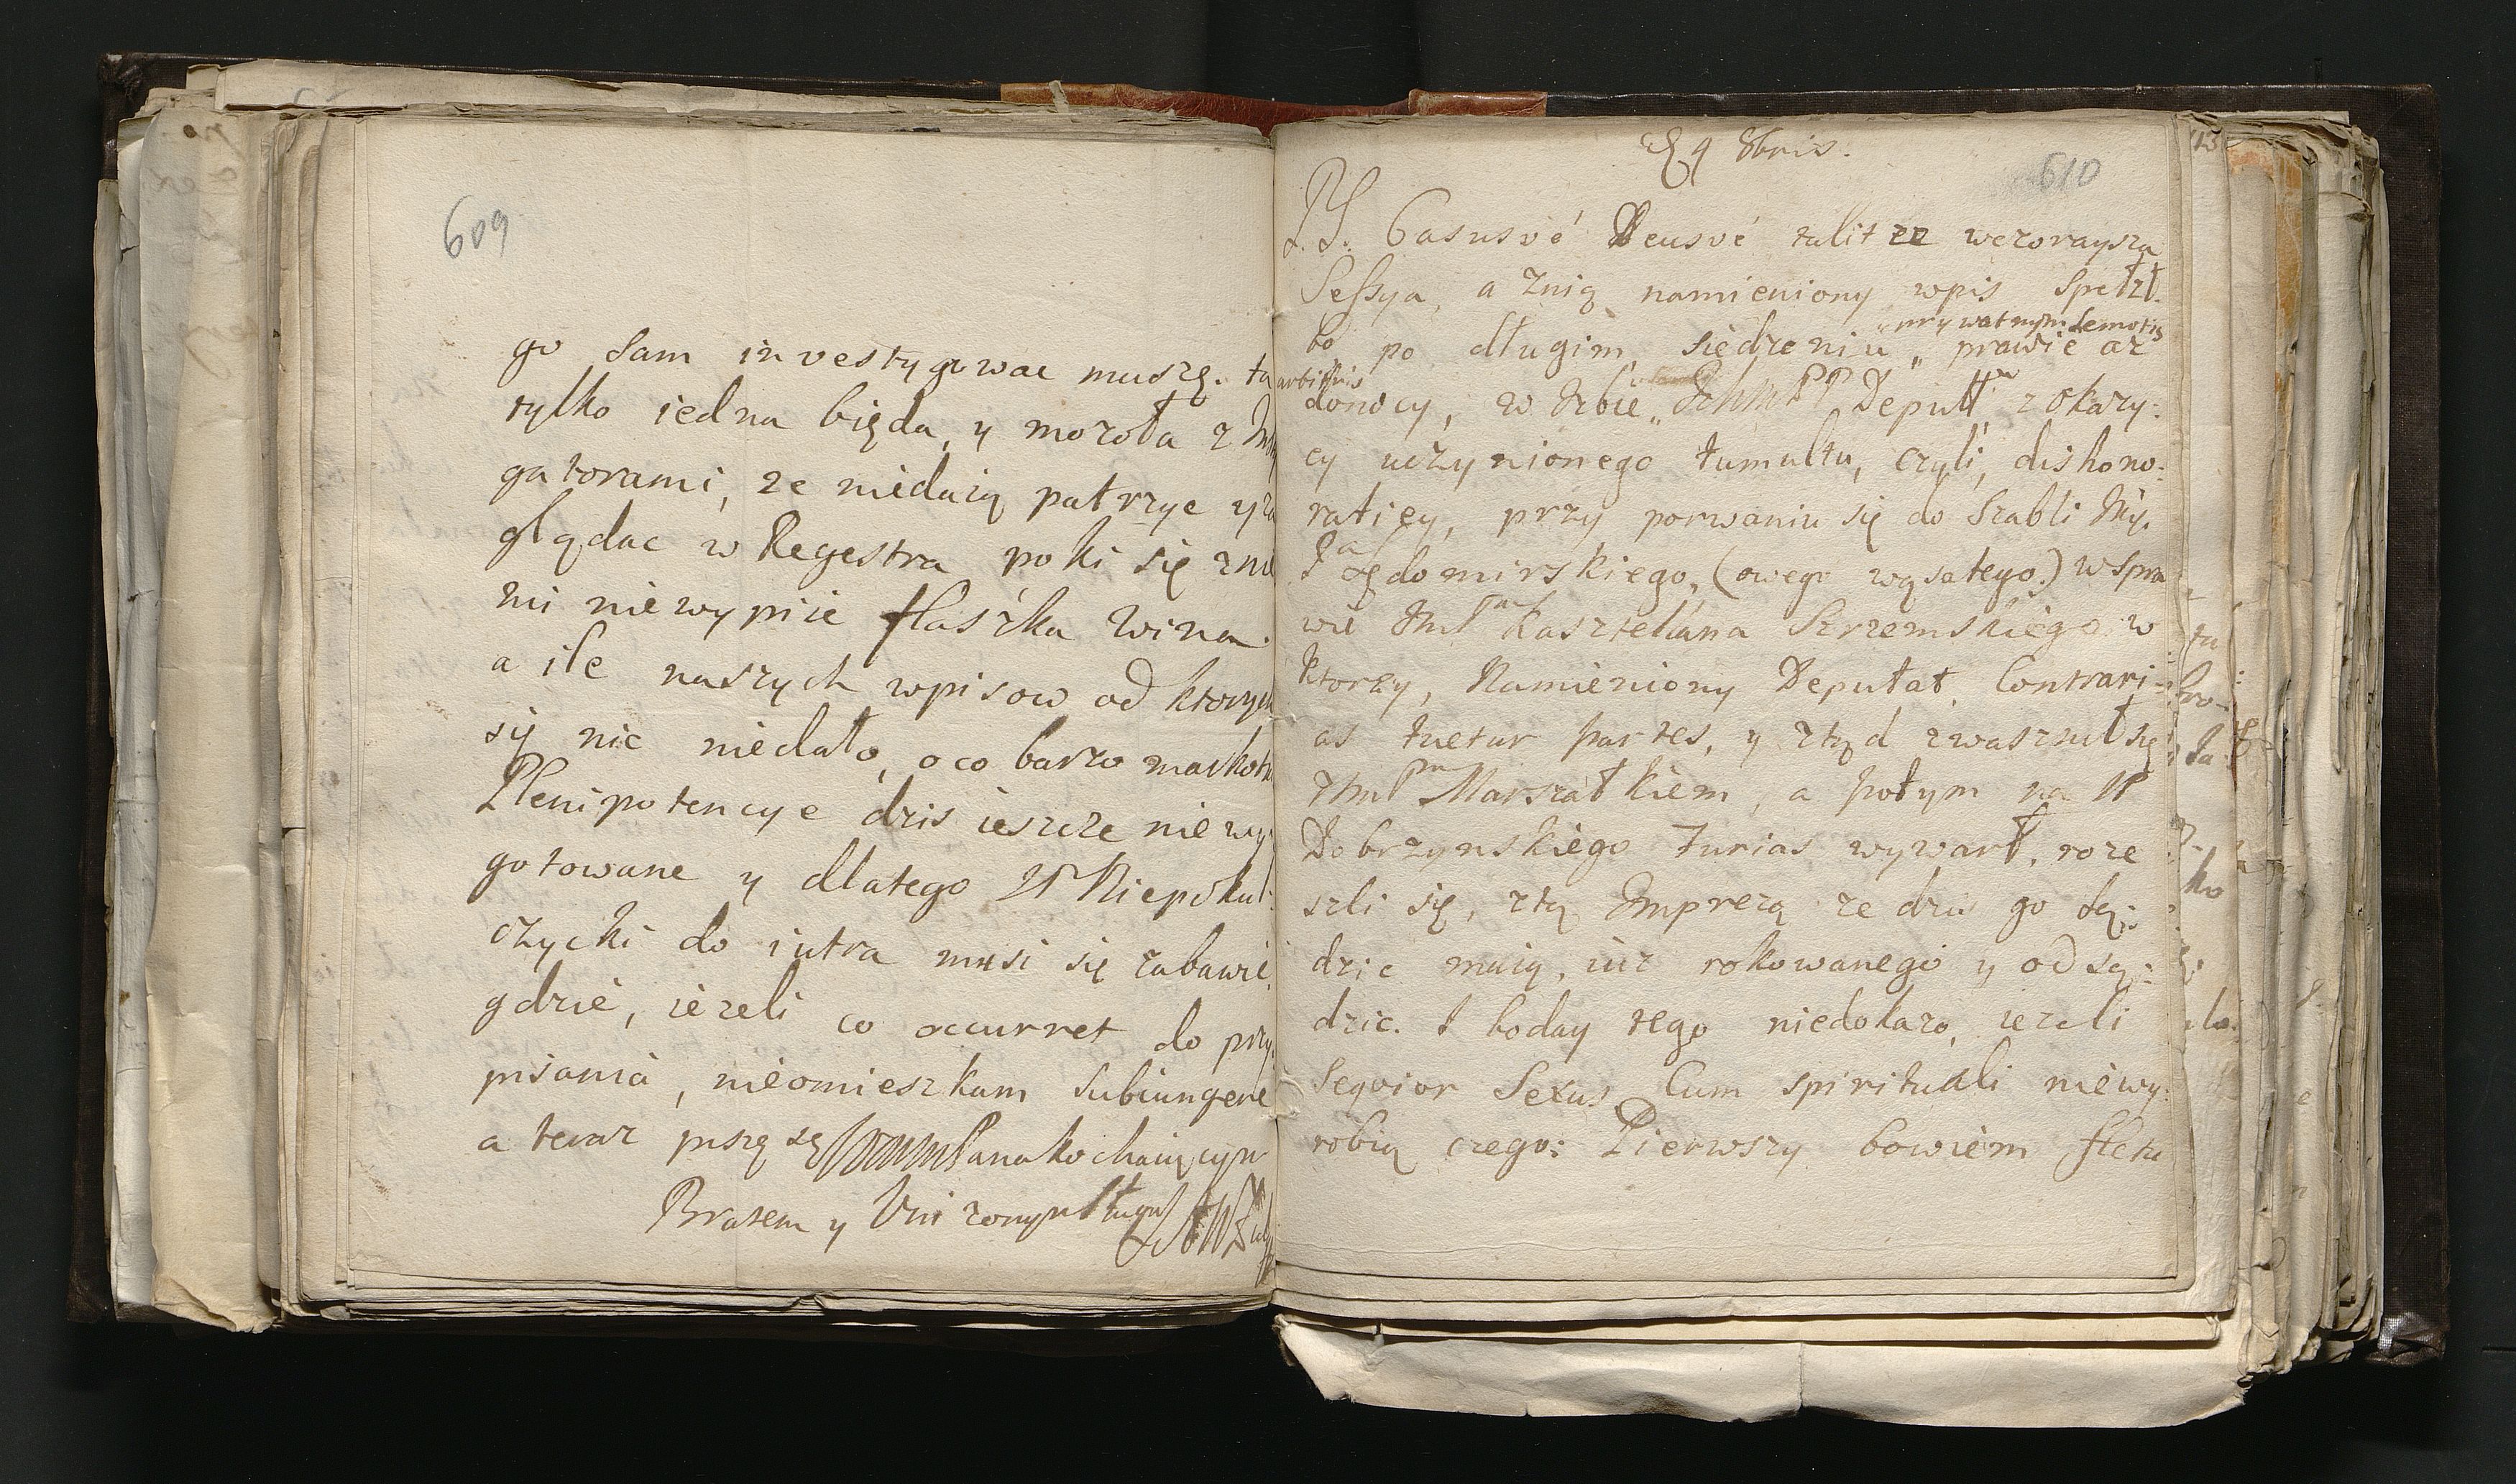 609
go sam investygowac muszę. ta
tylko iedna bięda, y mozoła z
gatorami, ze niedaią patrzyc y za
glądac w Regestra poki się zni
mi niewypiie flaszka wina.
a ile naszych wpisow od ktorych
się nic niedało, o co barzo markotn
Plenipotencye dzis ieszcze nie wy
gotowane y dlatego JP Niepokul:
czycki do iutra musi się zabawic.
gdzie, iezeli co occurret do przy
pisania, nieomieszkam subiungere
a teraz piszę się Pana kochaiącym
Bratem y Unizonym sługą
610
4 8bris.
P.S. Casusvé Deusvé tulit ze wczoraysza
Sessya, a znią namieniony wpis spełzł.
bo po długim siedzeniu „ prawie az
„ prywatnym Semotis
arbitris
donocy, w Izbie „ PP Deputt. z okazy:
cy uczynionego tumultu, czyli, dishono:
ratiey, przy porwaniu się do Szabli
Sędomirskiego, (owego wąsatego.) w spra
wie Kasztelana Szremskiego w
ktorzy, Namieniony Deputat Contrari:
as tuetur partes, y ztąd zwasznił się
z Marszałkiem, a potym na JP
Dobrzynskiego Furias wywarł. roze
szli się, ztą Imprezą ze dzis go Są:
dzic maią, iuz rokowanego y odsą:
dzic. I boday tego niedokazo, iezeli
Sequior Sexus Cum spirituali niewy:
robią czego: Pierwszy bowiem fletu